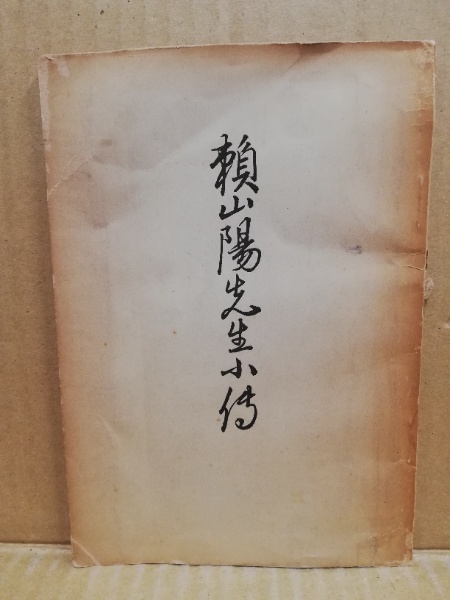 頼山陽先生小傳